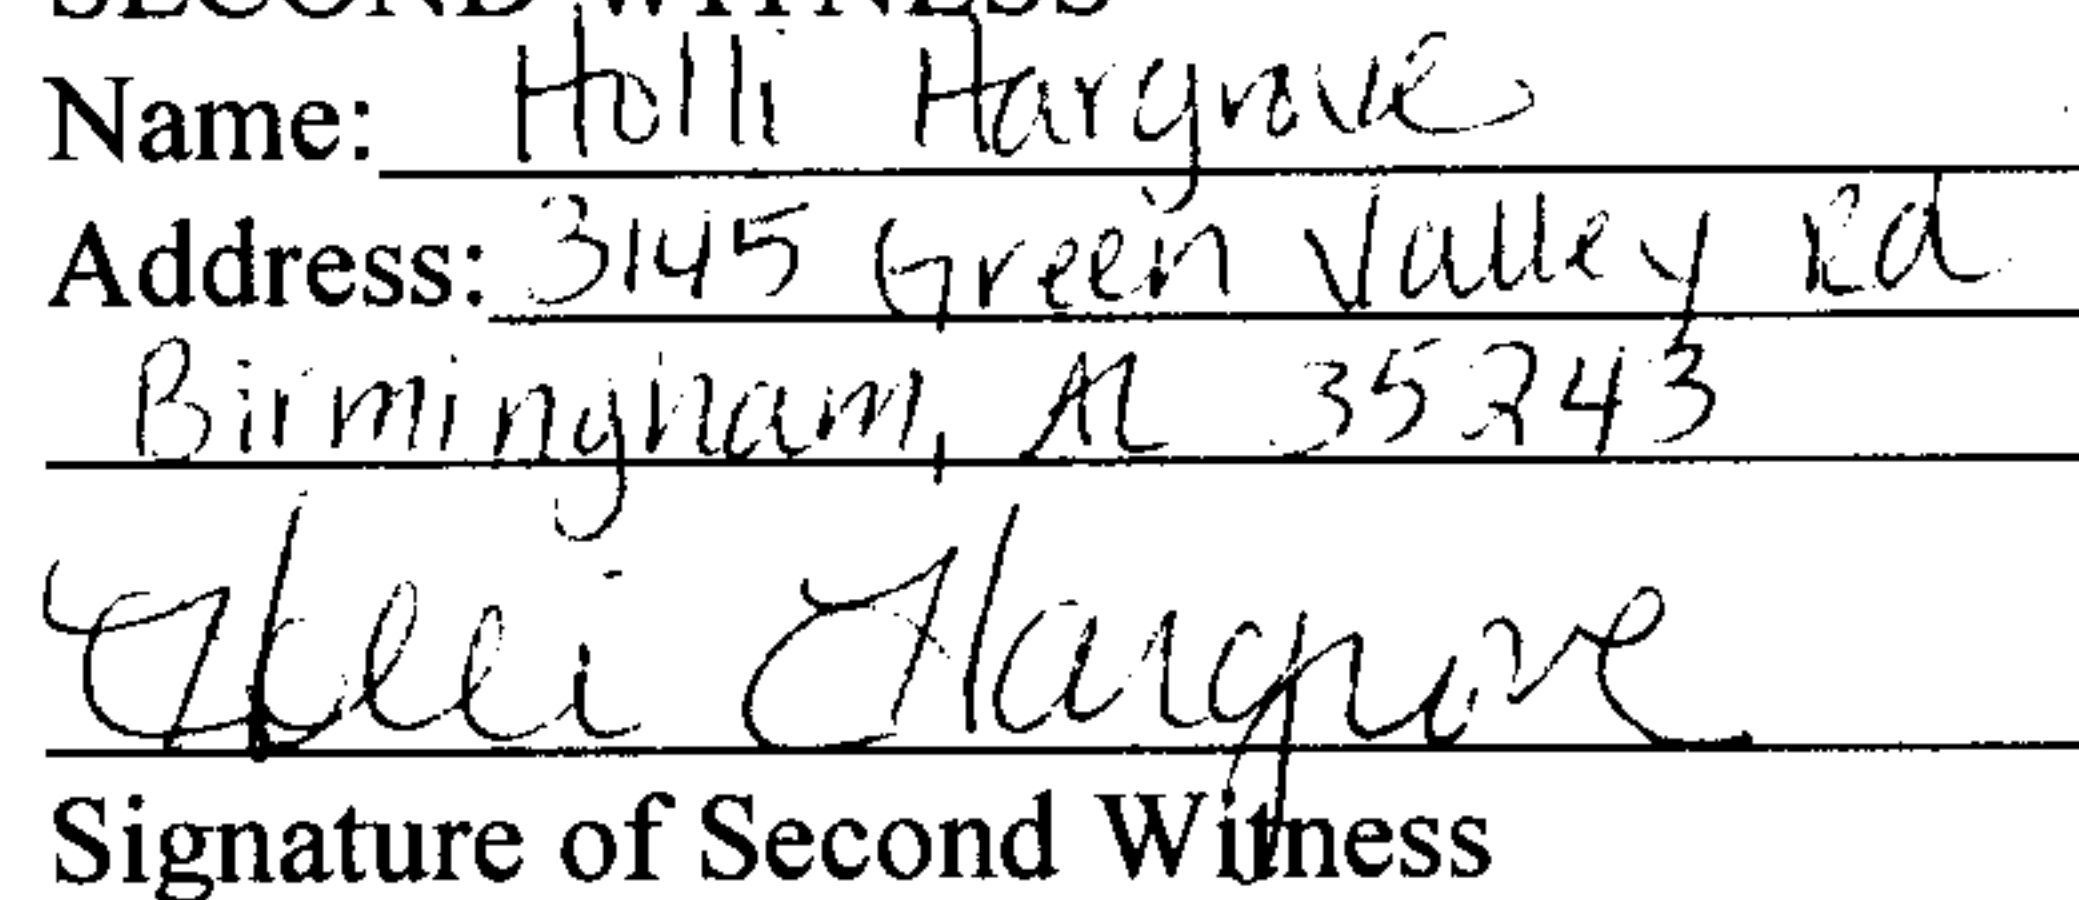 SECOND WITNESS
Name: Holli Hargrove
Address: 3145 Green Valley Rd
Birmingham, AL 35243
Holli Hargrove
Signature of Second Witness